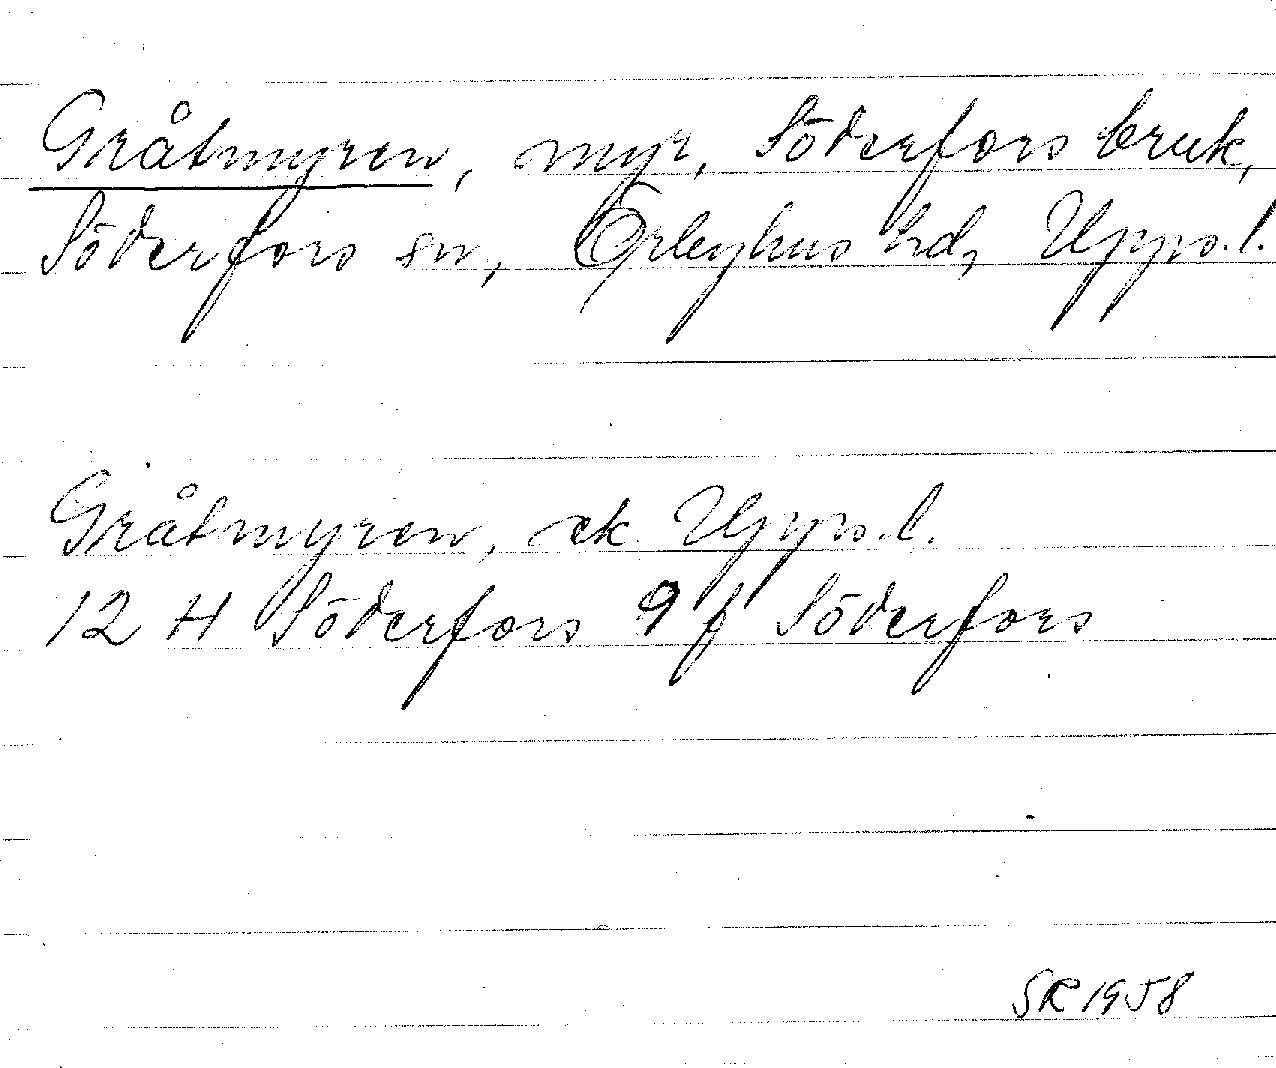 Gråtmyren, myr, Söderfors bruk,
Söderfors sn, Örbyhus hd, Upps. l.
Gråtmyren, ek. Upps. l.
12 H Söderfors 9 f Söderfors
SR 1958